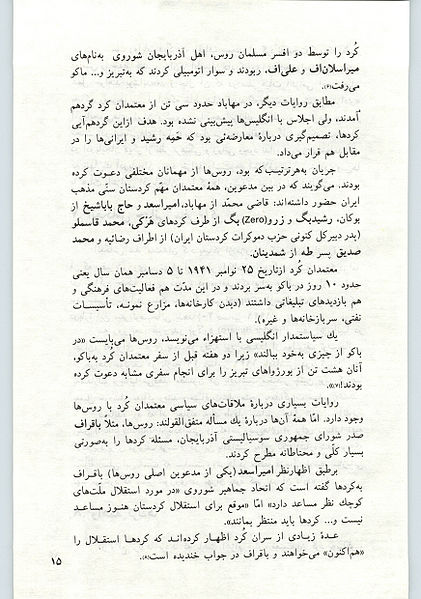 کُرد را توسط دو افسر مسلمان روس، اهل آذربایجان شوروی به‌نام‌های
میراسلان‌اف و علی‌اف، ربودند و سوار اتومبیلی کردند که به‌تبریز و... ماکو
می‌رفت(۶).
مطابق روایات دیگر، در مهاباد حدود سی تن از معتمدان کرد گردهم
آمدند، ولی اجلاس با انگلیس‌ها پیش‌بینی نشده بود. هدف ازاین گردهم‌آیی
کردها، تصمیم‌گیری دربارهٔ معارضه‌ئی بود که حَمِه رشید و ایرانی‌ها را در
مقابل هم قرار می‌داد.
جریان به‌هرترتیب‌که بود، روس‌ها از مهمانان مختلفی دعـوت کرده
بودند. می‌گویند که در بین مدعوین، همهٔ معتمدان مهّم کردستان سنّی مذهب
ایران حضور داشته‌اند: قاضی محمّد از مهاباد،امیراسعد و حاج باباشیخ از
بوکان، رشیدبگ و زرو(Zero)بگ از طرف کردهای هَرْکی، محمد قاسملو
(پدر دبیرکل کنونی حزب دموکرات کردستان ایران) از اطراف رضائیه و محمد
صدیق پسر طه از شمدینان.
معتمدان کُرد ازتاریخ ۲۵ نوامبر ۱۹۴۱ تا ۵ دسامبر همان سال یعنی
حدود ۱۰ روز در باکو به‌سر بردند و در این مدّت هم فعالیت‌های فرهنگی و
هم بازدیدهای تبلیغاتی داشتند (دیدن کارخانه‌ها، مزارع نمونـه، تأسیسـات
نفتی، سربازخانه‌ها و غیره).
یك سیاستمدار انگلیسی با استهزاء می‌نویسد، روس‌ها می‌بایست «در
باکو از چیزی به‌خود ببالند» زیرا دو هفته قبل از سفر معتمدان کُرد به‌باکو،
آنان هشت تن از بورژواهای تبریز را برای انجام سفری مشابه دعوت کرده
بودند!(۷).
روایات بسیاری دربارهٔ ملاقات‌های سیاسی معتمدان کُرد با روس‌ها
وجود دارد. امّا همهٔ آن‌ها دربارهٔ یك مسأله متفق‌القولند: روس‌ها، مثلاً باقراف
صدر شورای جمهوری سوسیالیستی آذربایجان، مسئله کردها را به‌صورتی
بسیار کلّی و محتاطانه مطرح کردند.
برطبق اظهارنظر امیراسعد (یکی از مدعوین اصلی روس‌ها) باقـراف
به‌کردها گفته است که اتحاد جماهیر شوروی «در مورد استقلال ملّت‌های
کوچك نظر مساعد دارد» امّا «موقع برای استقلال کردستان هنـوز مساعـد
نیست و... کردها باید منتظر بمانند».
عـدهٔ زیـادی از سـران کُرد اظهار کرده‌انـد که کردهـا استقـلال را
«هم‌اکنون» می‌خواهند و باقراف در جواب خندیده است(۸).
۱۵